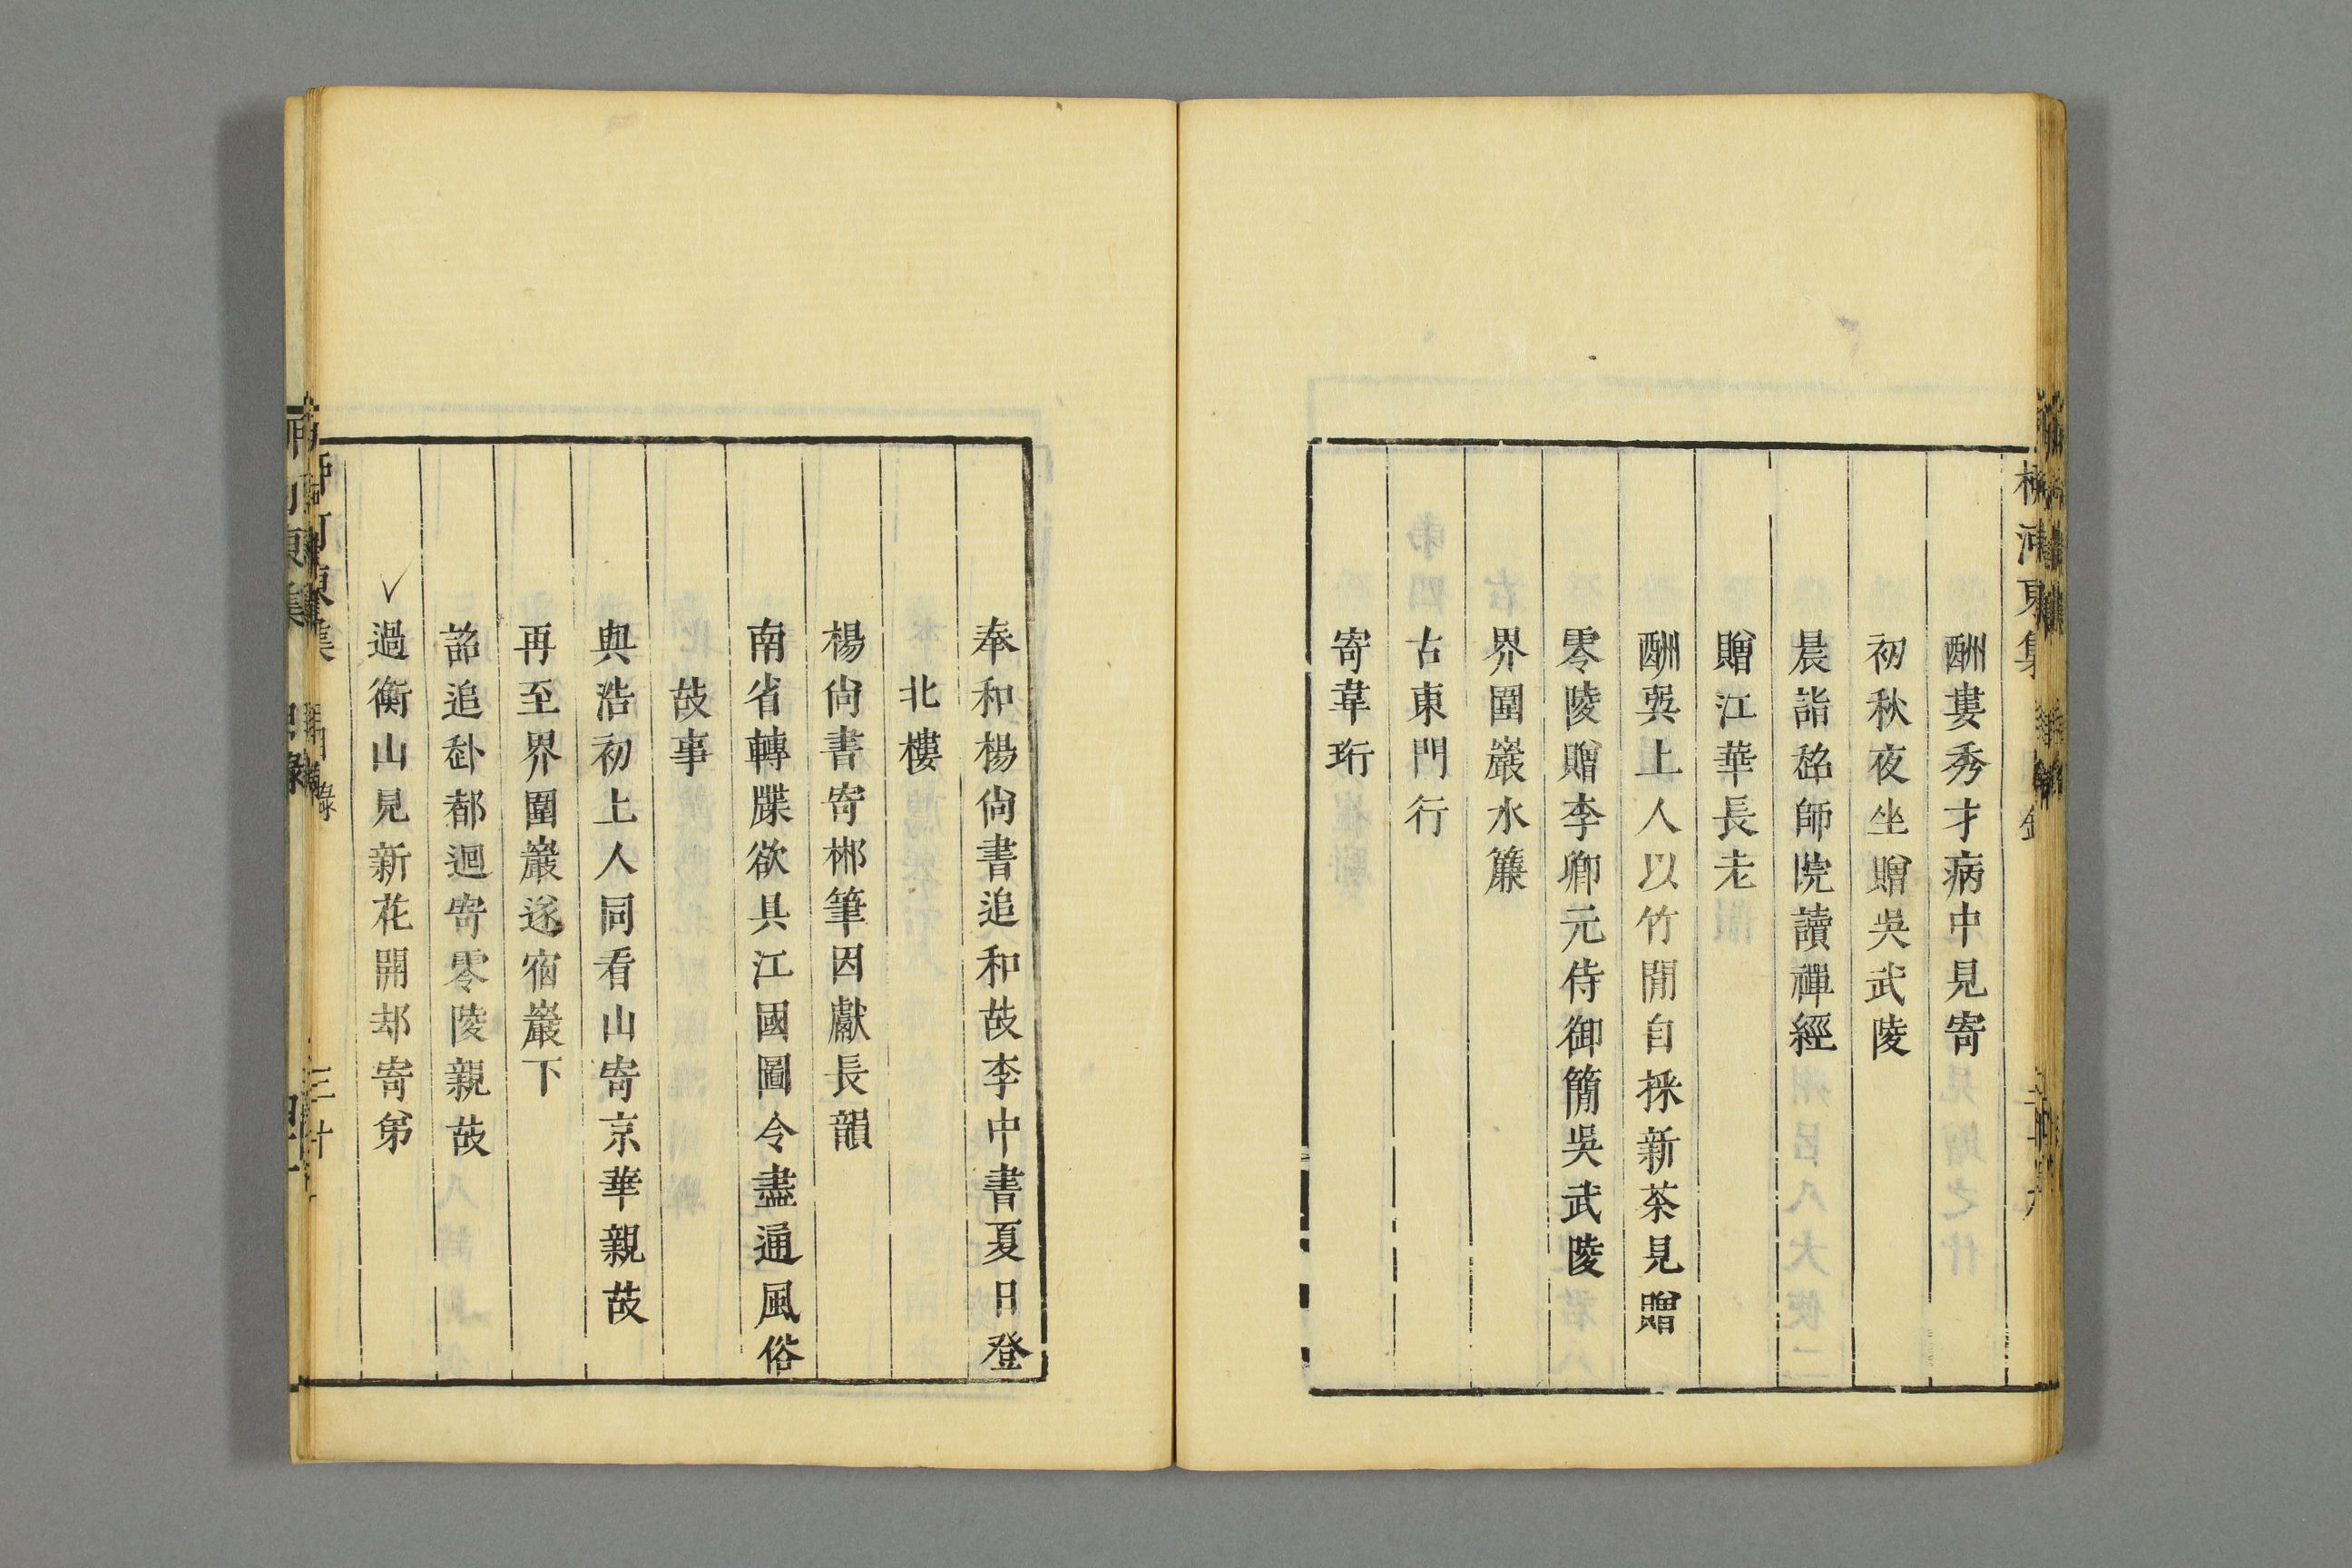 酬婁秀才病中見寄
初秋夜坐贈吳武陵
晨詣超師院讀禪經
贈江華長老
酬巽上人以竹間自採新茶見贈
零陵贈李卿元侍御簡吳武陵
界圍巖水簾
古東門行
寄韋珩
奉和楊尚書追和故李中書夏日登
北樓
楊尚書寄郴筆因獻長韻
南省轉牒欲具江國圖令盡通風俗
故事
與浩初上人同看山寄京華親故
再至界圍巖遂宿巖下
詔追赴都迴寄零陵親故
過衡山見新花開却寄弟